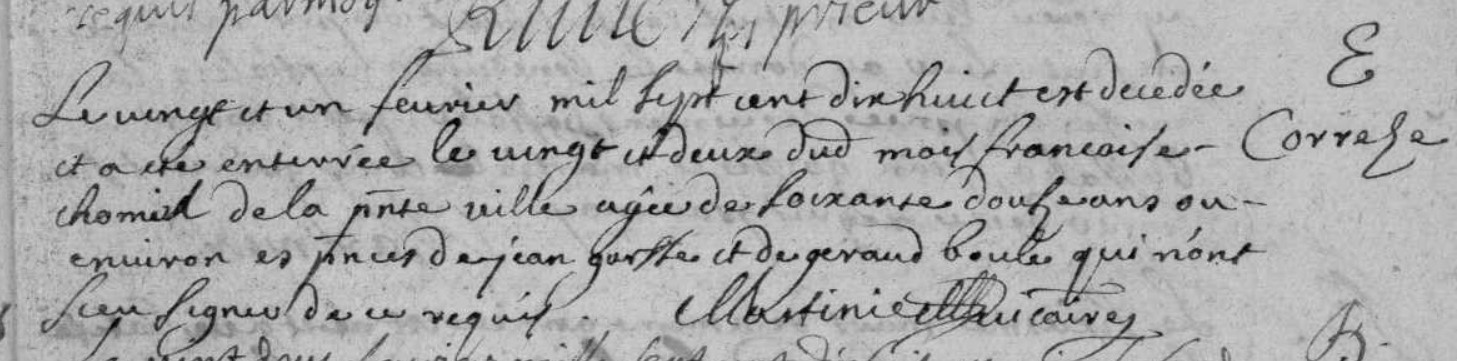 requis par moy
prieur
Le vingt et un feurier mil sept cent dix huict est decedée
E
et a ete enterrée le vingt et deux dud mois francoise -
Correze
chomeil de la pnte ville agée de soixante douze ans ou -
enuiron es pnces de jean gorsse et de geraud boule qui n'ont
sceu signer de ce requis . Martinie vicaire
B.